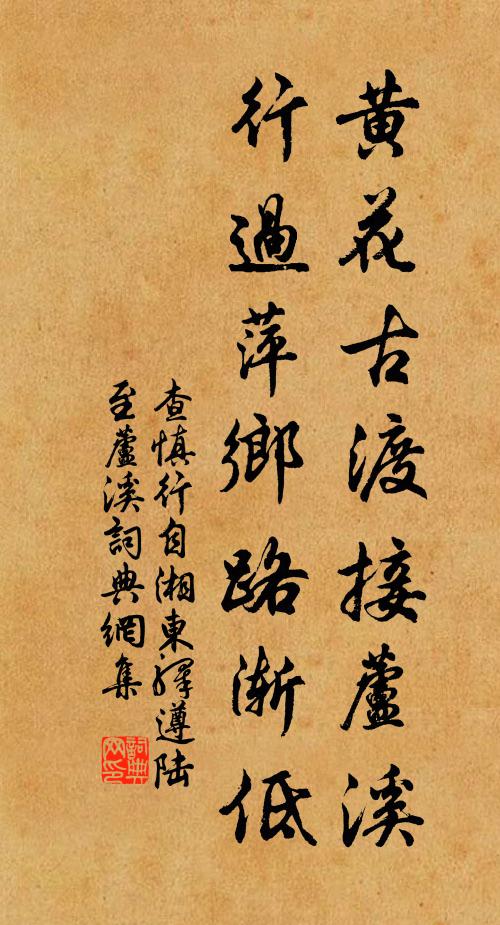 黄花古渡接蘆溪
行過萍鄉路漸低
查慎行自湘東驛遵陸
至蘆溪詞典網集
詞典
网印